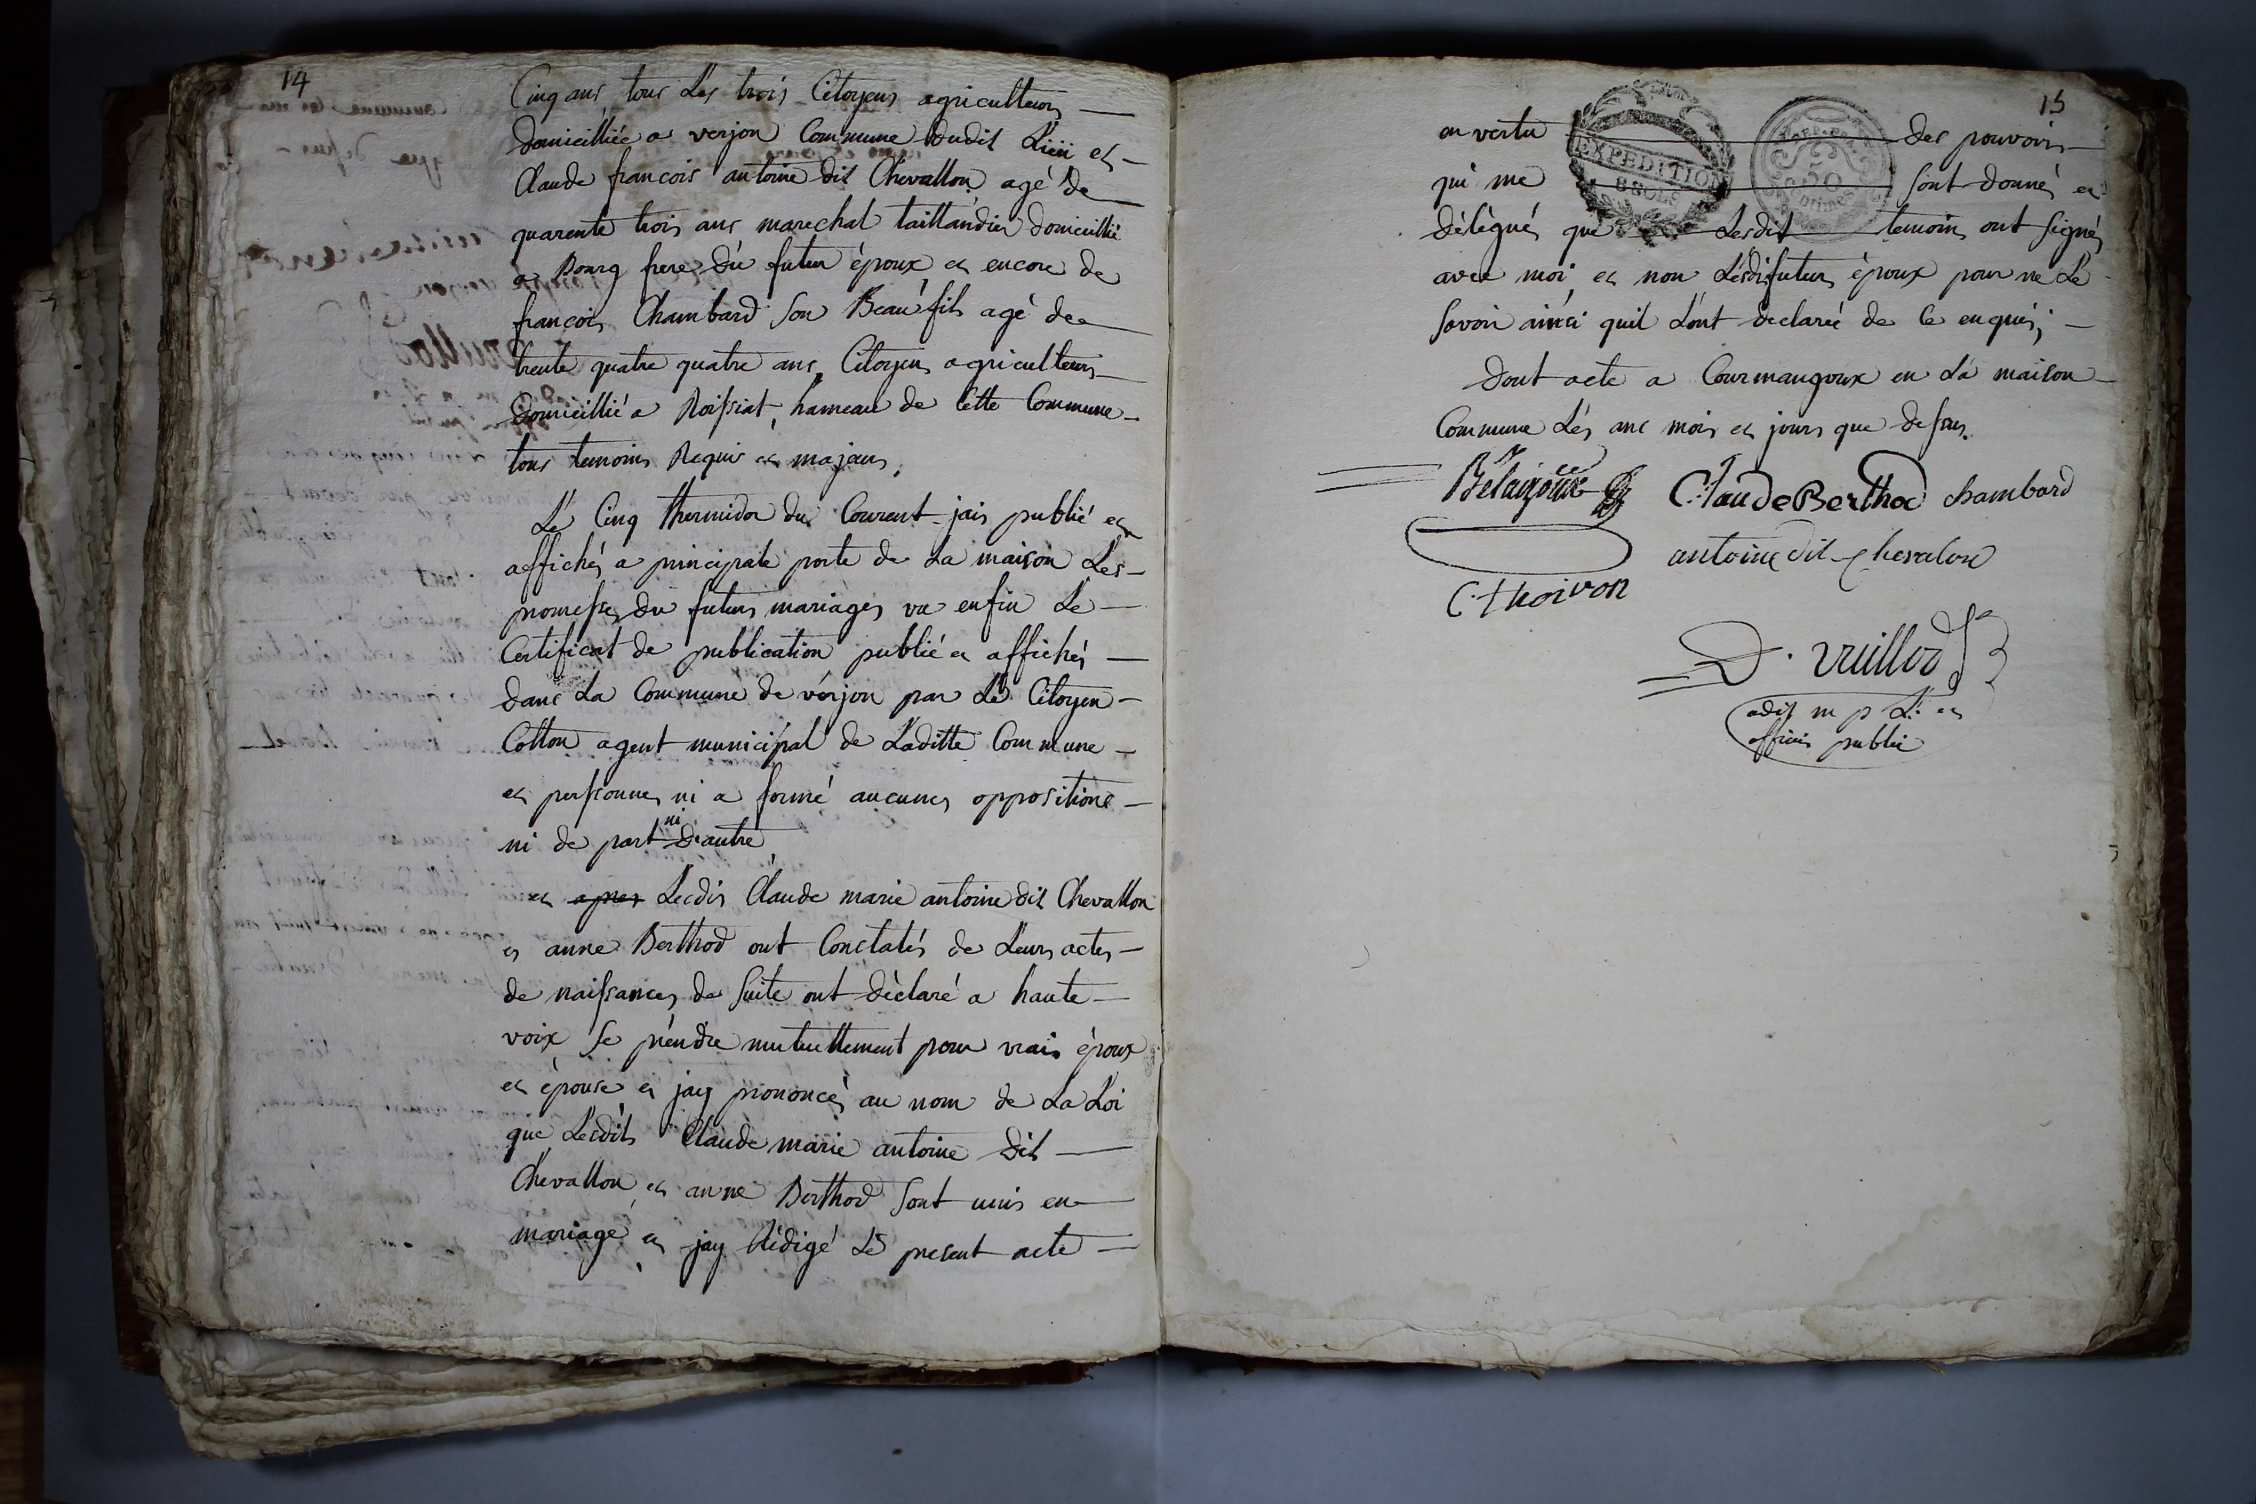 14
Cinq ans, tous Les trois Citoyens agriculteurs
domicilliée a verjon Commune dudit Lieu et
Claude francois antoine dit Chevallon agé de
quarente trois ans marechal taillandier domicillié
a Bourg frere du futur époux et encore de
francois Chambard son Beau fils agé de
trente quatre quatre ans, Citoyens agriculteurs
Domicillié a Roissiat, hameau de Cette Commune
tous temoins Requis et majeurs,
Le Cinq thermidor du Courent jais publié et
affichés a principale porte de La maison Les
promesses du futurs mariages vu enfin Le
Certificat de publication publié et affichés
dans La Commune de vérjon par Le Citoyen
Cotton agent municipal de Laditte Commune
et perssonnes ni a formé aucunes oppositions
ni de part ni D'autre
et apres Lesdis Claude marie antoine dit Chevallon
et anne Berthod ont Constatés de Leurs actes
de naissances de suite ont déclaré a haute
voix se prendre mutuellement pour vrais époux
et épouse et jay prononcés au nom de La Loi
que Lesdits Claude marie antoine Dit
Chevallon et anne Berthod sont unis en
mariage et jay Rédigé Le present acte
15
en vertu des pouvoirs
EXPEDITION
qui me sont donnés et
délégués que Lesdit temoins ont signés
avec moi, et non Lesdifuturs époux pour ne Le
savoir ainsi quil L'ont declaré de Ce enquis,
Dont acte a Courmangoux en La maison
Commune Lés ans mois et jours que dessus.
Claude Berthod chambard
antoine dit chevalon
C. thoivon
D. vuillod
adjt m p L. et
officis public